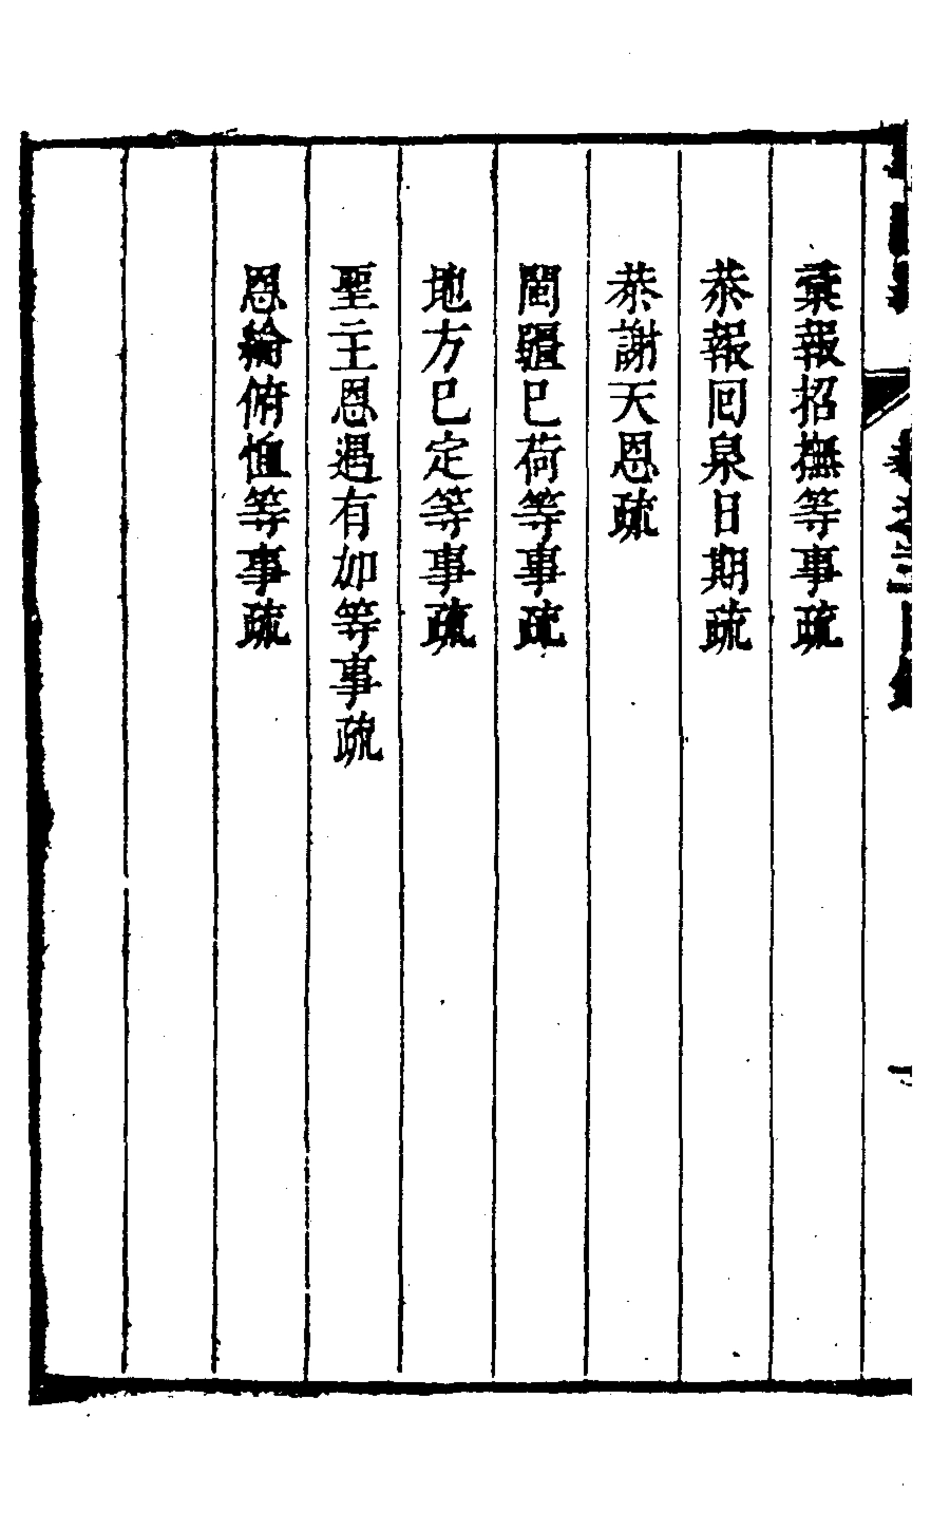 彙報招撫等事疏
恭報回泉日期疏
恭謝天恩疏
閩疆已荷等事疏
地方已定等事疏
聖主恩遇有加等事疏
恩綸俯恤等事疏